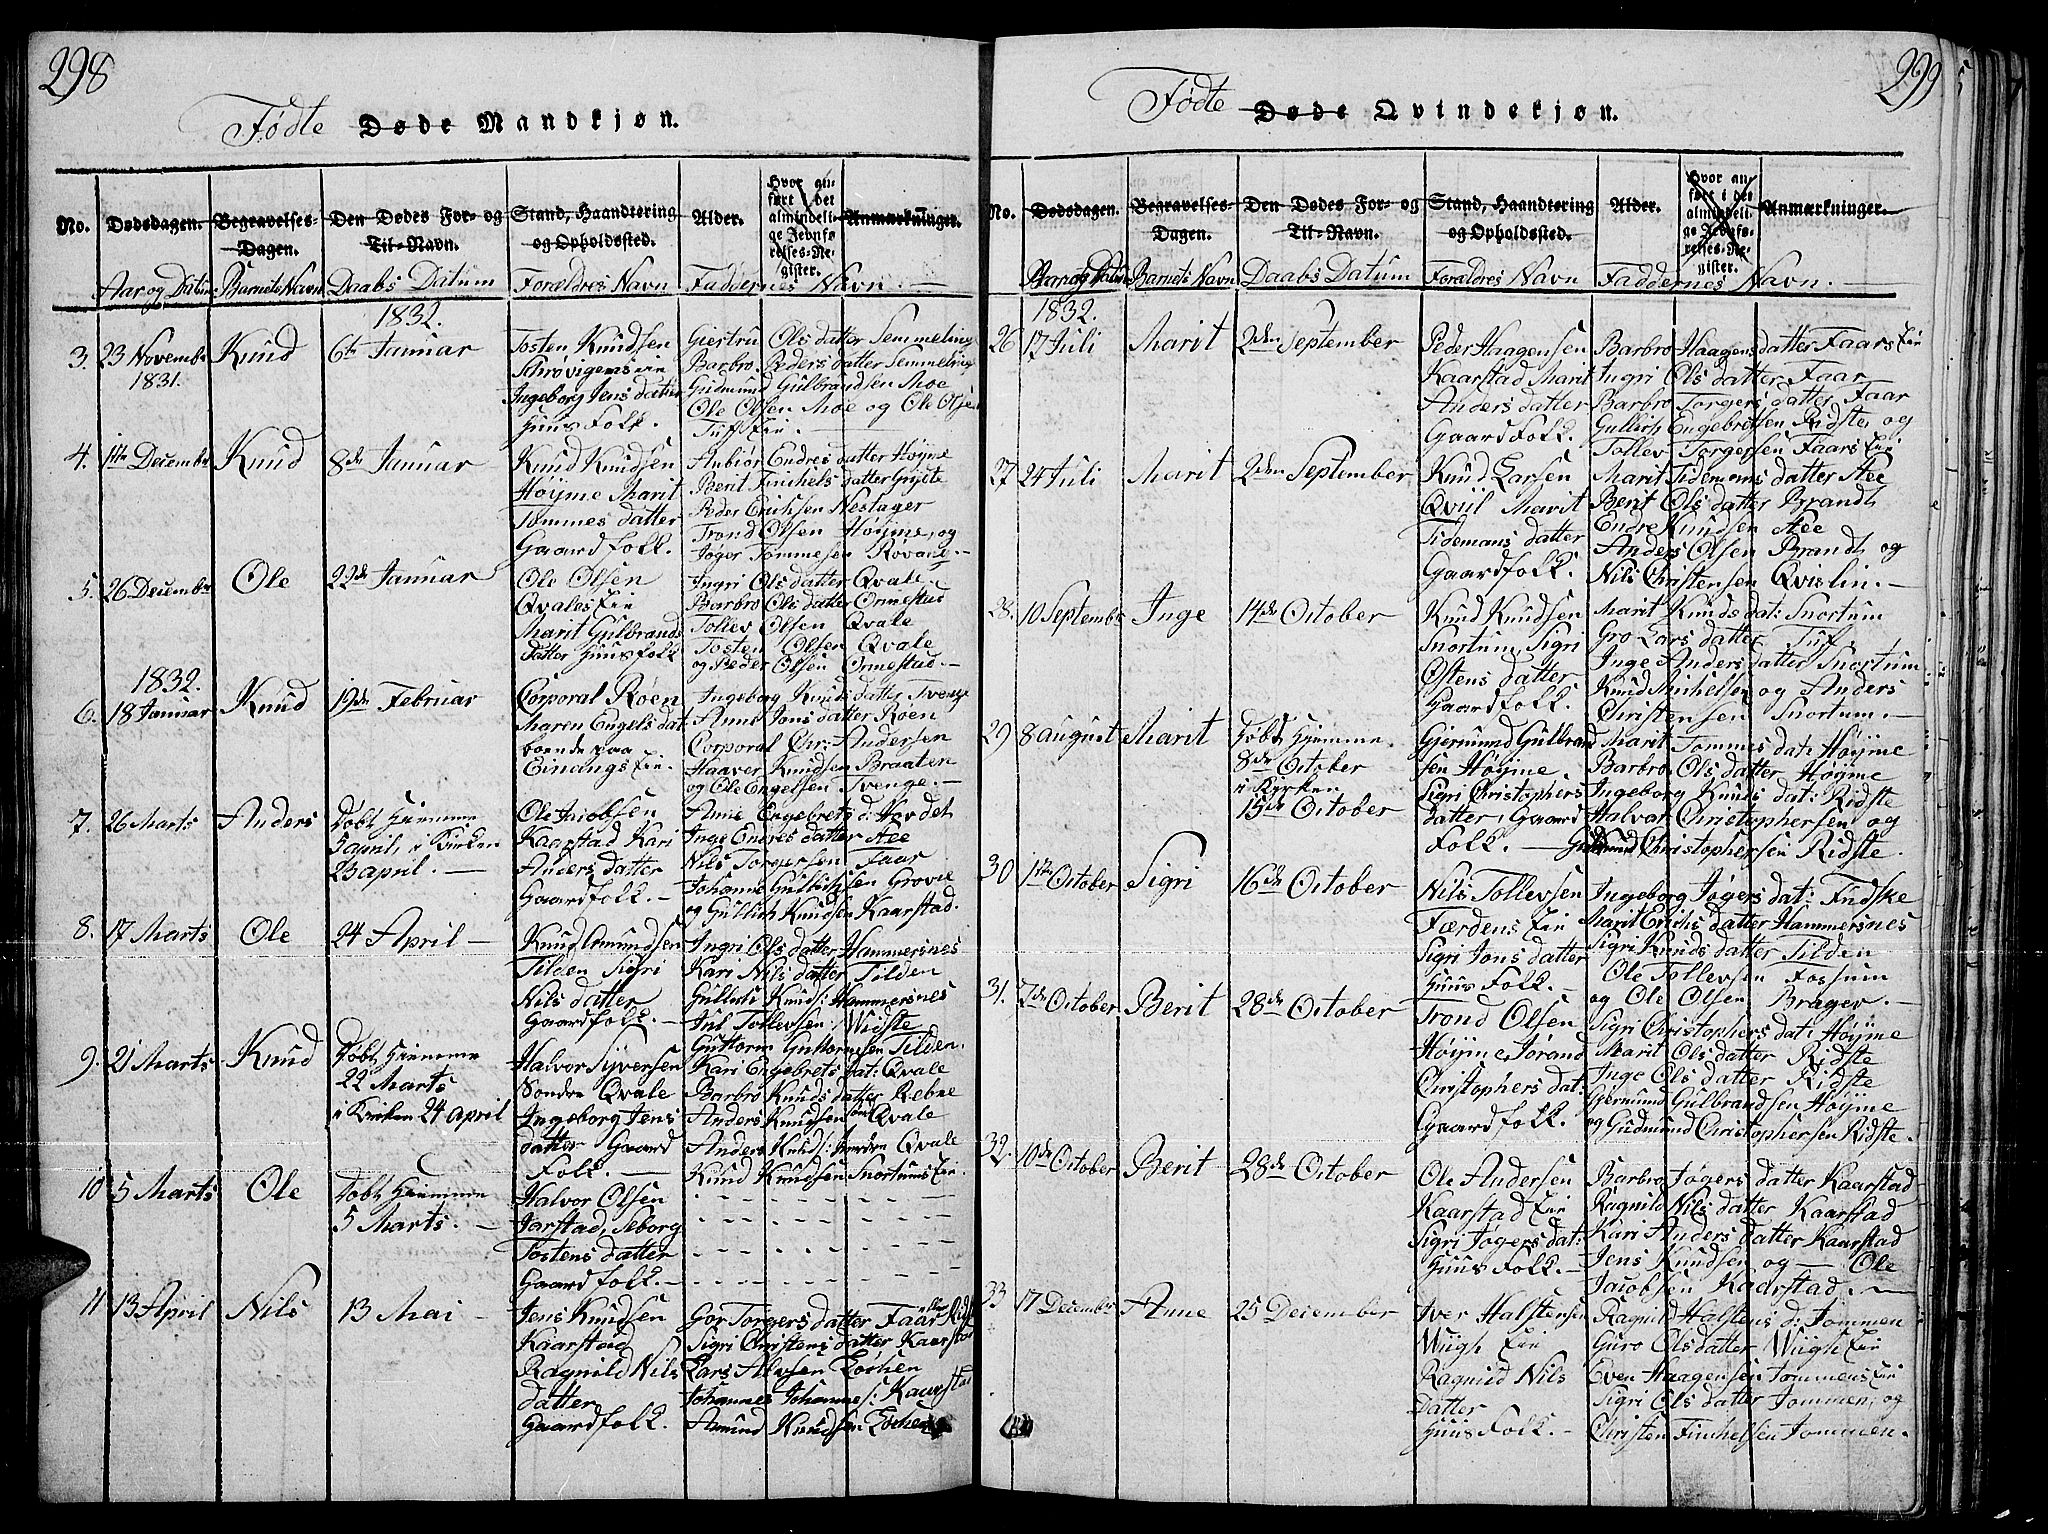 298
Fødte Døde Mandkjøn.
No. Dødsdagen. Begravelses-Dagen. Den Dødes For- og Til-Navn. Stand, Haandtering og Opholdssted. Alder. Hvor anført i det almindelige Jevnførelses-Register. Anmærkninger.
Aar og Datum Barnets Navn Daabs Datum Forældres Navn Faddernes Navn.
1832.
3. 23 Novembr 1831. Knud 6te Januar
Tosten Knudsen
Ingeborg Jens datter
Huus Folk.
Giertru Ols datter Semmeling
Barbro Peders datter Semmeling
Gudmund Gulbrandsen Moe
Ole Olsen Moe og Ole Olsen
Tuff Eie.
4. 1ste Decembr Knud 8de Januar
Knud Knudsen
Høyme Marit
Tommes datter
Gaardfolk.
Anbiør Endres datter Høyme
Berit Finchels datter
Peder Erichsen Nestager
Trond Olsen Høyme, og
Joger Tommesen Røvane.
5. 26 Decembr Ole 22de Januar
Ole Olsen
Qvales Eie
Marit Gulbrands
datter Huusfolk
Ingri Ols datter Qvale
Barbro Ols datter Ormestad
Tollev Olsen Qvale
Tosten Olsen Qvale
og Peder Olsen Ormestad.
1832.
6. 18 Januar Knud 19de Februar
Corporal Røen
Maren Engels dat
boende paa
Einangs Eie.
Ingeborg Knuds datter Tvenge
Anne Jons datter Røen
Corporal Chr: Andersen
Haaver Knudsen Braaten
og Ole Engelsen Tvenge.
7. 26 Marts Anders
Døbt Hiemme
3 april, i Kirken
23 april.
Ole Jacobsen
Kaarstad Kari
Anders datter
Gaardfolk.
Anne Engebrets d: Hovdet
Inge Endres datter Aee
Nils Torgersen Faar
Johanne Gullichsen Grovie
og Gullich Knudsen Kaarstad.
8. 17 Marts Ole 24 April
Knud Amundsen
Tilden Sigri
Nils datter
Gaardfolk.
Ingri Ols datter Hammersnes
Kari Nils datter Tilden
Gullich Knuds: Hammersnes
Jul Tollevsen, Widste
Guttorm Guttormsen Tilden.
9. 21 Marts Knud
Døbt Hiemme
22 Marts
i Kirken 24 april
Halvor Syversen
Søndre Qvale
Ingeborg Jens
datter Gaard
Folk.
Kari Engebrets dat: Qvale
Barbro Knuds datter Rebne
Anders Knudsen Qvale
Anders Knuds: Qvale
Knud Knudsen Snortums Eie.
10 5 Marts Ole
Døbt Hiemme
5 Marts.
Halvor Olsen
Jarstad, Seborg
Tostens datter
Gaardfolk.
11 13 April Nils 13 Mai
Jens Knudsen
Kaarstad
Ragnild Nils
datter
Gaardfolk.
Gor Torgers datter Faar
Sigri Christens datter Kaarstad
Lars Alvsen Lochen
Johannes Johannes: Kaarstad
Amund Knudsen Lochen
299
Fødte Døde Qvindekjøn.
No. Dødsdagen. Begravelses-Dagen. Den Dødes For- og Til-Navn. Stand, Haandtering og Opholdssted. Alder. Hvor anført i det almindelige Jevnførelses-Register. Anmærkninger.
Aar og Datum Barnets Navn Daabs Datum Forældres Navn Faddernes Navn.
1832.
26 17 Juli Marit 2den September
Peder Haagensen
Kaarstad Marit
Anders datter
Gaardfolk.
Barbro Haagens datter Faars Eie
Ingri Ols datter Faar
Barbro Torgers datter Faar
Gullich Engebretsen Ridste, og
Tollev Torgersen Faars Eie
27 24 Juli Marit 2den September
Knud Larsen
Qviil Marit
Tidemans datter
Gaardfolk.
Marit Tidemans datter Aee
Berit Ols datter Brandt
Endre Knudsen Aee
Anders Olsen Brandt og
Nils Christensen Qvislin.
28. 10 Septembr Inge 14de October
Knud Knudsen
Snortum, Sigri
Ostens datter
Gaardfolk.
Marit Knuds dat: Snortum
Gro Lars datter Tuf
Inge Anders datter Snortum
Knud Michelsen og Anders
Christensen Snortum.
29 8 august Marit
Døbt Hjemme
8de October
i Kirken
15de October
Gjermund Gulbrand
sen Høyme.
Sigri Christophers
datter, Gaard
Folk.
Marit Tommes dat: Høyme
Barbro Ols datter Høyme
Ingeborg Knuds dat: Ridste
Halvor Christophersen og
Gudmund Christophersen Ridste.
30 1ste October Sigri 16de October
Nils Tollevsen
Færdens Eie
Sigri Jons datter
Huus Folk.
Ingeborg Jøgers dat: Fudske
Marit Erichs datter Hammersnes
Sigri Knuds datter Tilden
Ole Tollevsen Fossum
og Ole Olsen Brager.
31. 7de October Berit 28de October
Trond Olsen
Høyme, Jorand
Christophers dat:
Gaardfolk.
Sigri Christophers dat: Høyme
Marit Ols datter Ridste
Inge Ols datter Ridste
Gjermund Gulbrandsen Høyme
og Gudmund Christophersen Ridste.
32. 10de October Berit 28de October
Ole Andersen
Kaarstad Eie
Sigri Jogers dat:
Huus Folk.
Barbro Jøgers datter Kaarstad
Ragnild Nils datter Kaarstad
Kari Anders datter Kaarstad
Jens Knudsen og Ole
Jacobsen Kaarstad.
33 17 December Anne 25 December
Iver Halstensen
Wiigh Eie
Ragnild Nils
Datter
Huus Folk.
Ragnild Halstens d: Jommen
Guro Ols datter Wiigh Eie
Even Haagensen Jommens Eie
Sigri Ols datter Jommen, og
Christen Finchelsen Jommen.